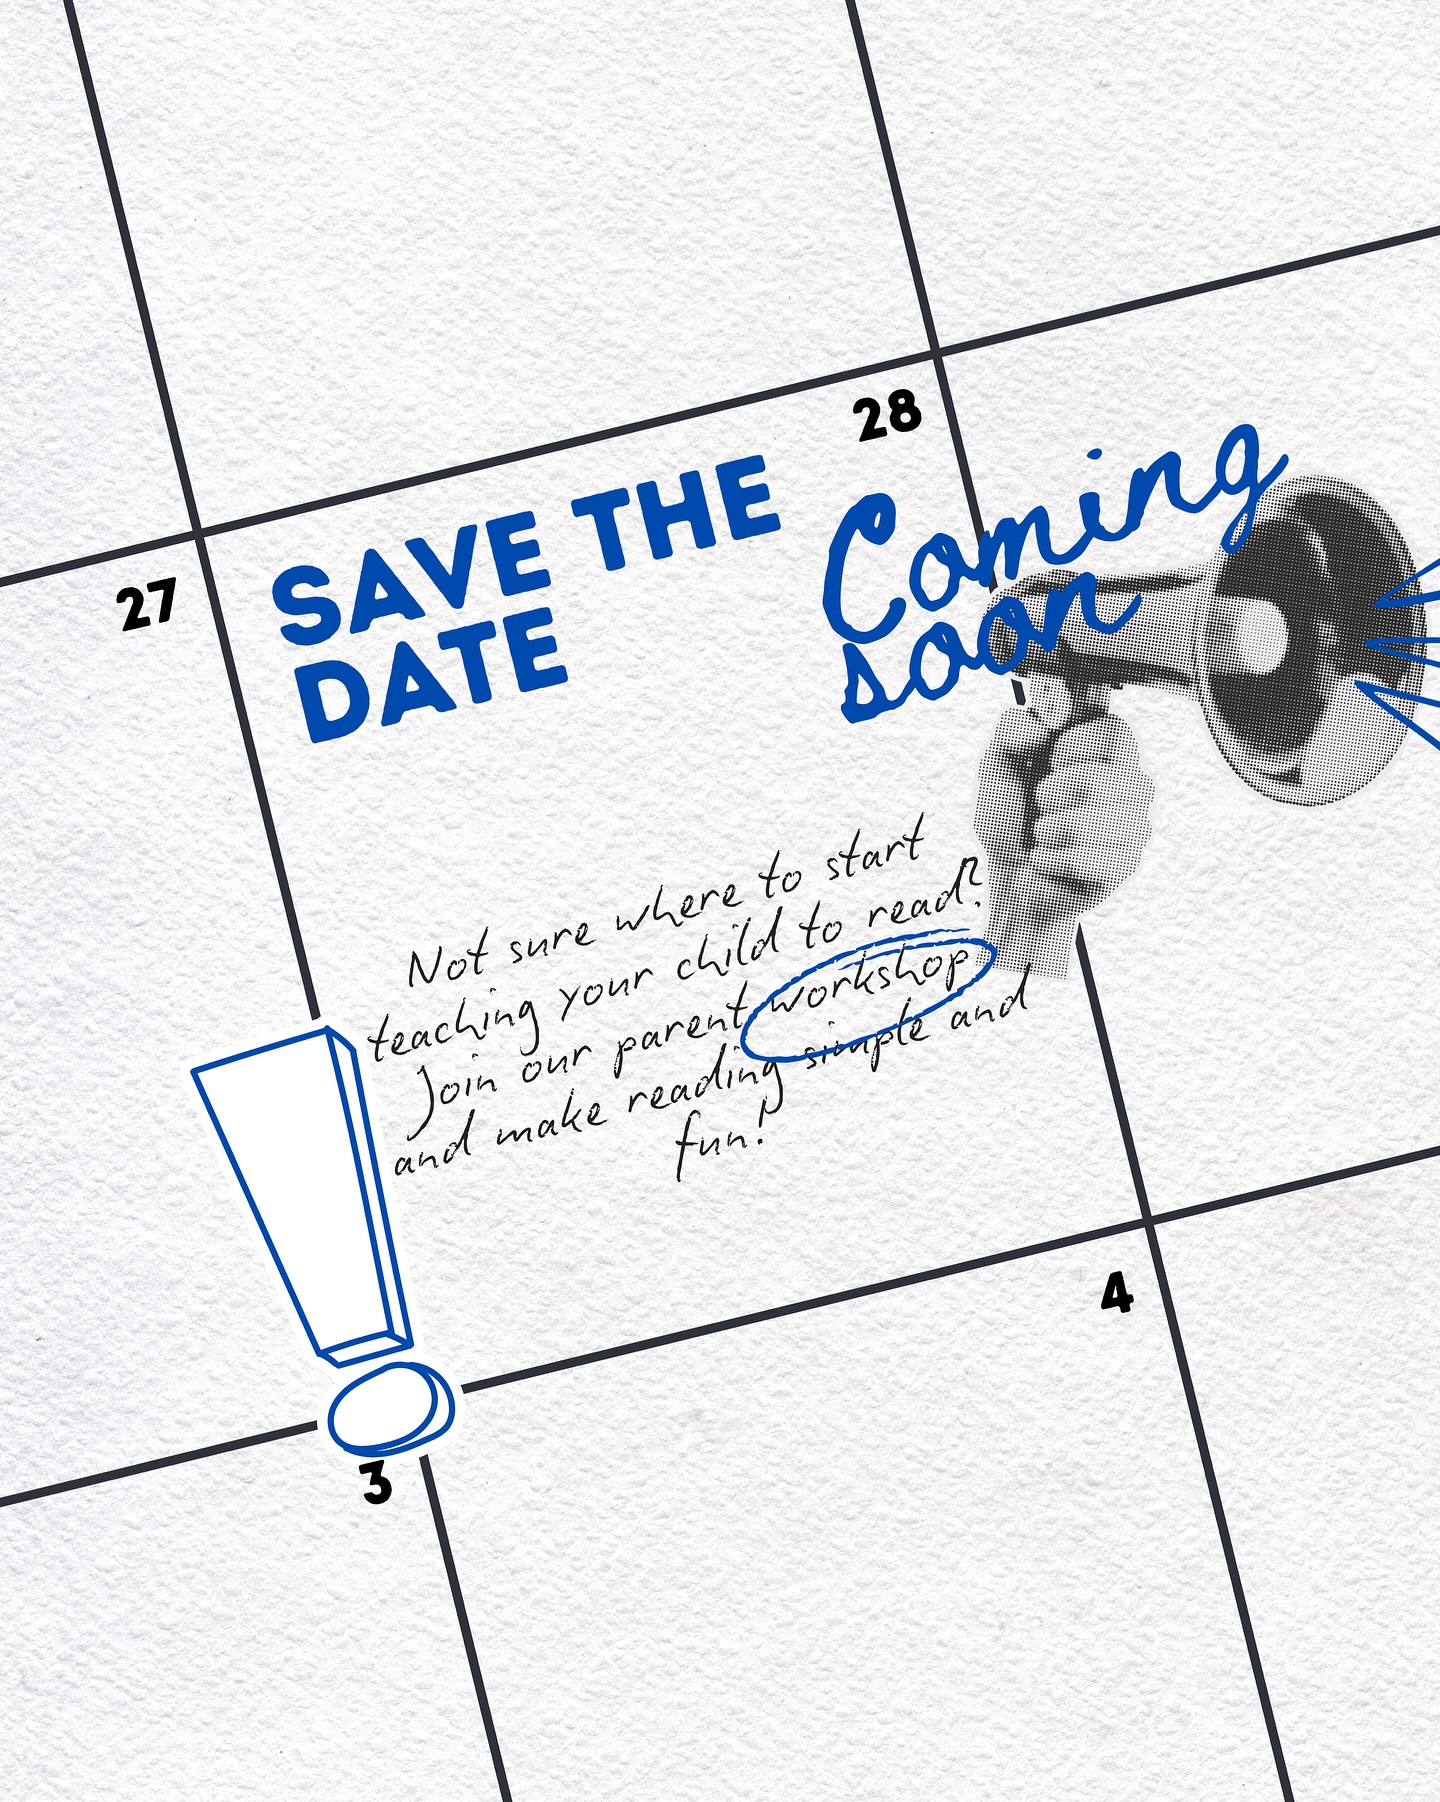 28
27
SAVE THE
DATE
Coming
soon
Not sure where to start
teaching your child to read?
Join our parent workshop
and make reading simple and
fun!
4
3